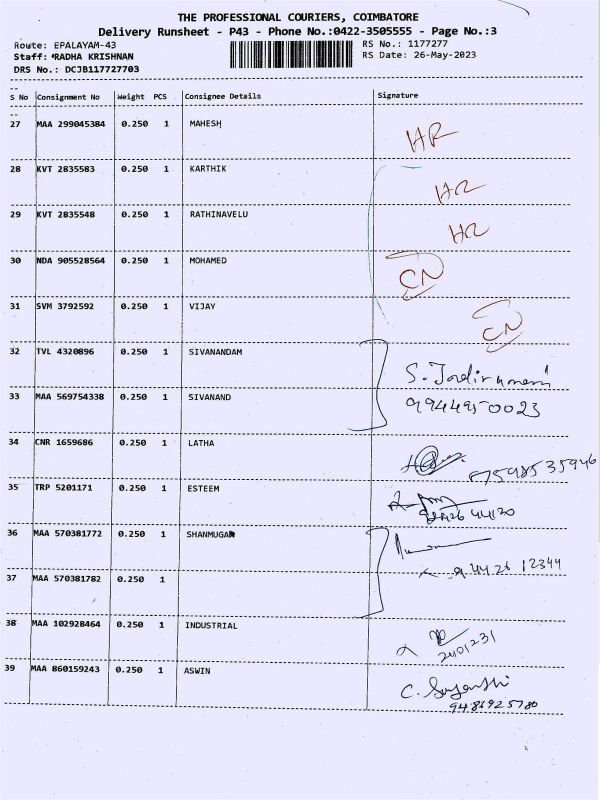 THE PROFESSIONAL COURIERS, COIMBATORE
Delivery Runsheet - P43 - Phone No.:0422-3505555 - Page No.:3
Route: EPALAYAM-43 RS No.: 1177277
Staff: RADHA KRISHNAN RS Date: 26-May-2023
DRS No.: DCJB117727703
S No Consignment No Weight PCS Consignee Details Signature
27 MAA 299045384 0.250 1 MAHESH HR
28 KVT 2835583 0.250 1 KARTHIK HR
29 KVT 2835548 0.250 1 RATHINAVELU HR
30 NDA 905528564 0.250 1 MOHAMED CN
31 SVM 3792592 0.250 1 VIJAY CN
32 TVL 4320896 0.250 1 SIVANANDAM S.
33 MAA 569754338 0.250 1 SIVANAND 9944950023
34 CNR 1659686 0.250 1 LATHA
35 TRP 5201171 0.250 1 ESTEEM
36 MAA 570381772 0.250 1 SHANMUGAM
37 MAA 570381782 0.250 1 9442612344
38 MAA 102928464 0.250 1 INDUSTRIAL 2401231
39 MAA 860159243 0.250 1 ASWIN C.
9486925780